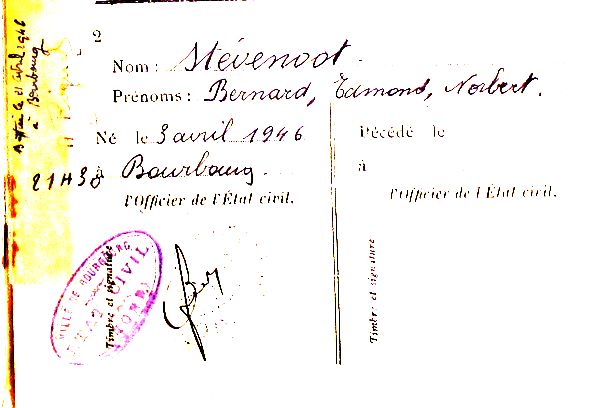 Baptisé le 21 avril 1946
à Bourbourg
2
Nom : Stévenoot.
Prénoms : Bernard, Edmond, Norbert.
Né le 3 avril 1946
à Bourbourg.
21H30
l'Officier de l'État civil,
Timbre et signature
VILLE DE BOURBOURG
ÉTAT CIVIL
(NORD)
Décédé le
à
l'Officier de l'État civil,
Timbre et signature